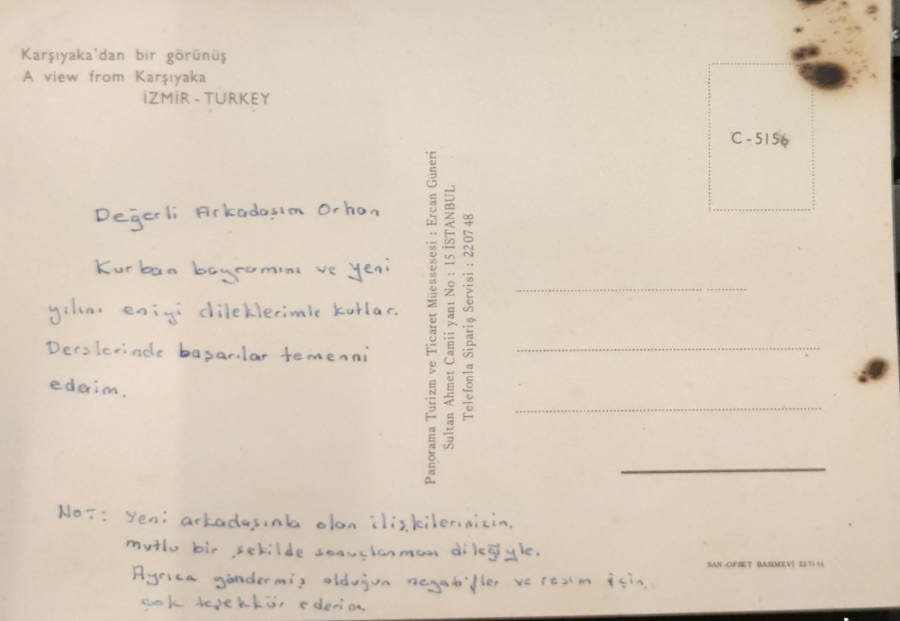 Karşıyaka'dan bir görünüş
A view from Karşıyaka
İZMİR - TURKEY
C - 5156
Değerli Arkadaşım Orhan
Kurban bayramını ve yeni
yılını eniyi dileklerimle kutlar.
Derslerinde başarılar temenni
ederim.
Not: Yeni arkadaşınla olan ilişkilerinizin.
mutlu bir şekilde sonuçlanması dileğiyle.
Ayrıca göndermiş olduğun negatifler ve resim için,
çok teşekkür ederim
Panorama Turizm ve Ticaret Müessesesi : Ercan Güneri
Sultan Ahmet Camii yanı No : 15 İSTANBUL
Telefonla Sipariş Servisi : 22 07 48
SAN-OFSET BASIMEVİ 22 71 44